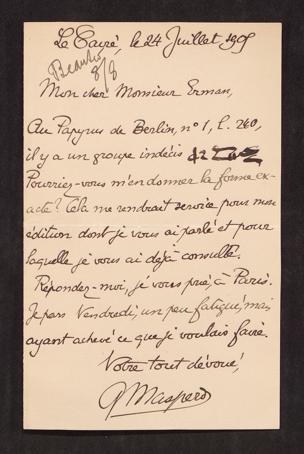 Le Caire, le 24 Juillet 1905
Beantw
8/8
Mon cher Monsieur Erman,
Au Papyrus de Berlin, n° 1, l. 240,
il y a un groupe indécis
Pourriez-vous m'en donner la forme ex-
acte? Cela me rendrait service pour mon
édition dont je vous ai parlé et pour
laquelle je vous ai déjà consulté.
Répondez-moi, je vous prie, à Paris.
Je pars Vendredi, un peu fatigué, mais
ayant achevé ce que je voulais faire.
Votre tout dévoué,
G Maspero